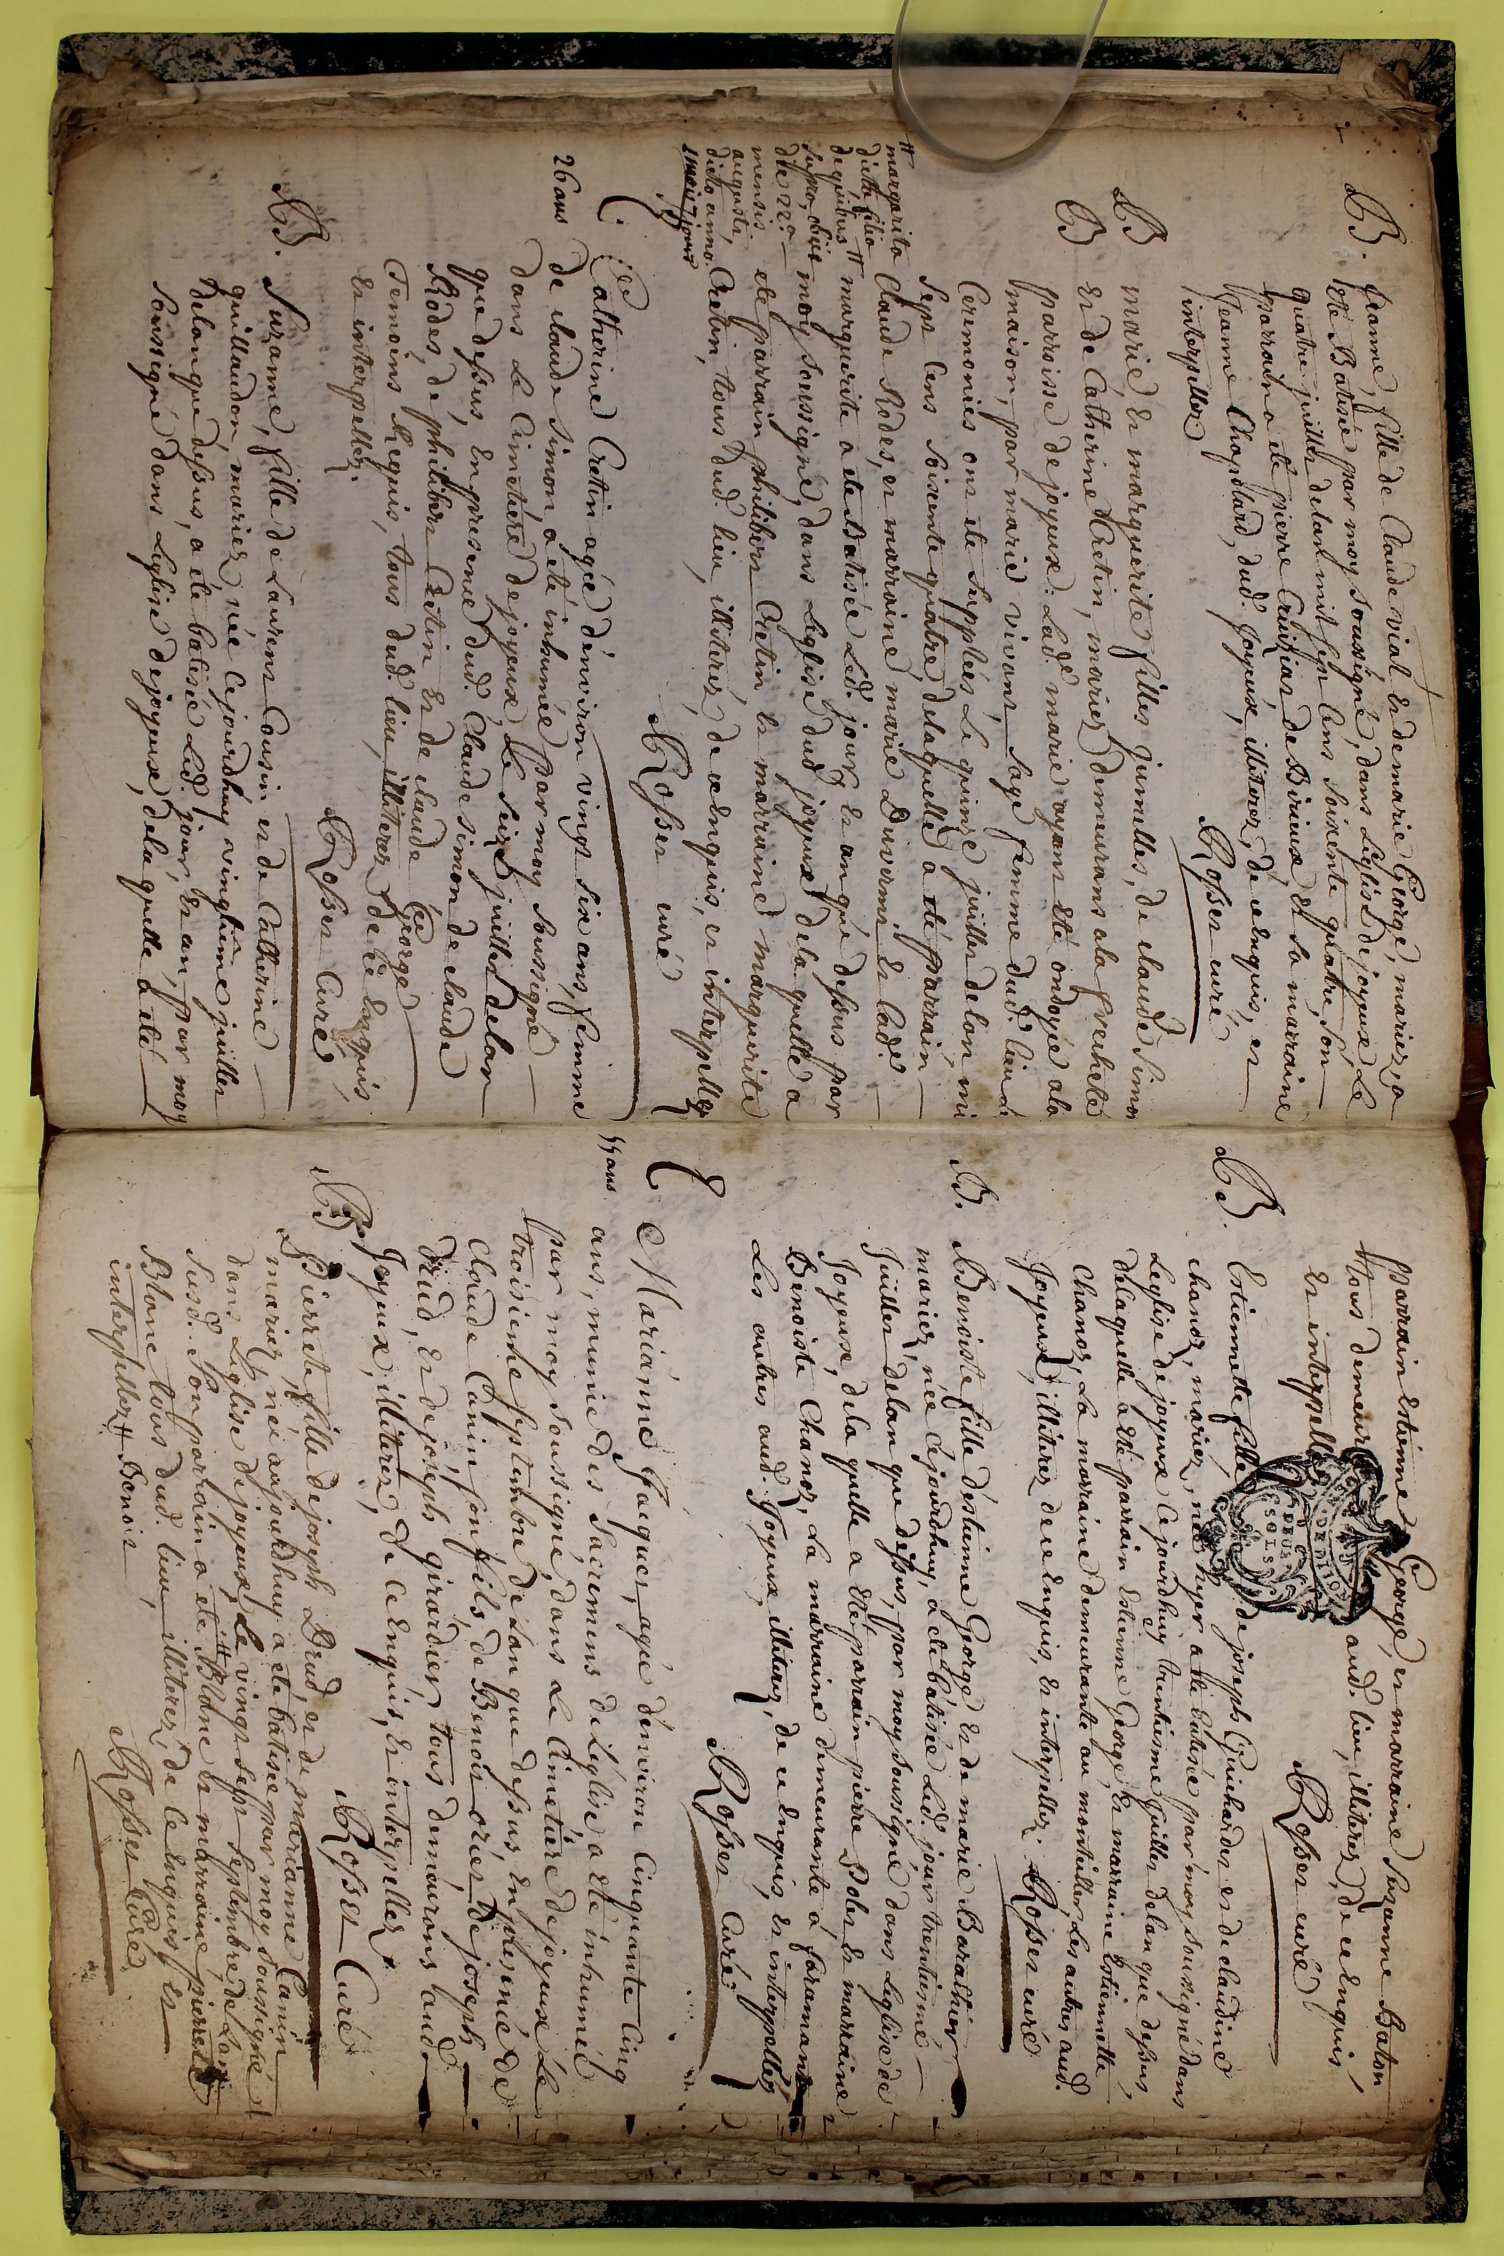 B. Jeanne, fille de Claude vial et de marie George, mariez, a
eté Batisée par moy soussigné, dans Leglise de joyeux Le
quatre juillet de lan mil sept Cens soixente quatre, son
parrain a eté pierre de Birieux et sa marraine
Jeanne Chapoland, dud. Joyeux, illiterez, de ce enquis, et
interpellez
Rosset curé
B marie, et marguerite filles jumelles, de claude Simon
B et de Catherine Cretin, mariez demeurans a la frechete
parroisse de joyeux. Lad.e marie ayant eté ondoyée a la
maison, par marie vivant sage femme dud. lieu
Ceremonies ont eté supplées Le quinze juillet de lan mi
sept Cens soixente quatre, de laquelle a eté parrain
Claude Rodes, et marraine marie Duvernis et lad.e
# marguerite a eté Batisée Led. jour et an que dessus par
moy soussigné, dans Leglise dud joyeux de la quelle a
eté parrain philibert Cretin et marraine marguerite
Cretin, tous dud. lieu, illiterez, de ce enquis, et interpellez
Rosset curé
#
margarita
dicta filia
de quibus
supra, obiit
die 22a
mensis
augusti
dicto anno.
1 mois 7 jours
C. Catherine Cretin agée d'environ vingt six ans, femme
26 ans de claude simon, a eté inhumée par moy soussigné
dans Le Cimetiere de joyeux, Le seize juillet de lan
que dessus, en presence dud. Claude simon de claude
Rodes, de philibert Cretin et de claude George
Temoins Requis, tous dud. lieu, illiterez de ce Enquis,
et interpellez.
Rosset Curé
B. Suzanne, fille de Laurent Cousin et de Catherine
guillaudon, mariez, née ce jourdhuy vingtième juillet
de lan que dessus, a eté batisée Led. jour, et an, par moy
soussigné dans Leglise de joyeux, de la quelle a eté
parrain Estienne George, et marraine Suzanne Baton
tous demeur aud. lieu, illiterez, de ce enquis,
et interpellez
Rosset curé
B. Estiennette fille de joseph Guichardet et de claudine
chanoz, mariez, née hyer a eté batisée par moy soussigné dans
Leglise de joyeux Ce jourdhuy trentieme juillet de lan que dessus
de laquelle a eté parrain Estienne George, et marraine Estiennette
Chanoz, La marraine demeurante au montellier, Les autres aud.
Joyeux, illiterez de ce enquis, et interpellez. Rosset curé
GEN. DE DIJON
DEUX
SOLS
B. Benoiste, fille d'estienne George et de marie Barathier
mariez, née ce jourdhuy, a eté batisée Led. jour trentieme
Juillet de lan que dessus, par moy soussigné dans Leglise de
Joyeux, de la quelle a eté parrain pierre Robet et marraine
Benoiste Chanoz, La marraine demeurante a faramans
Les autres aud. Joyeux, illiterez, de ce enquis, et interpellez
Rosset Curé
C Marianne Jacquet, agée d'environ Cinquante Cinq
55 ans ans, munie des Sacremens de l'église a eté inhumée
par moy soussigné, dans Le Cimetiere de joyeux Le
troisieme septembre de Lan que dessus en presence de
Claude Canin son fils, de Benoit oriet, de joseph
Drud, et de joseph girardier tous demeurans aud.
Joyeux, illiterez, de ce enquis, et interpellez.
Rosset Curé
B Pierrete fille de joseph Drud, et de marianne Canin
mariez, née aujourdhuy a eté batisée par moy soussigné
dans Leglise de joyeux, Le vingt sept septembre de Lan
susd. Son parrain a eté # Blanc et marraine pierrete
Blanc tous dud. lieu, illiterez, de ce enquis, et
interpellez # Benoit
Rosset Curé